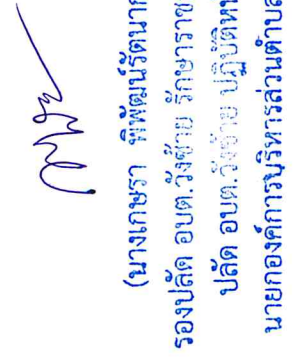 (นางเกษรา พิพัฒน์รัตนาก
รองปลัด อบต.วังซ้าย รักษาราช
ปลัด อบต.วังซ้าย ปฏิบัติห
นายกองค์การบริหารส่วนตำบล